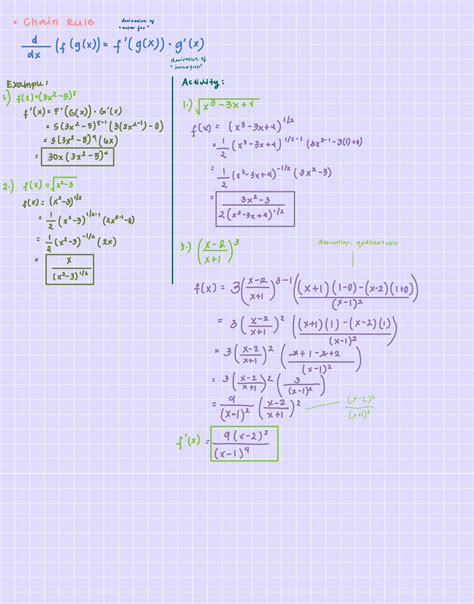 • Chain Rule
derivative of
"outer fxn"
d/dx (f(g(x)) = f'(g(x)) · g'(x)
derivative of
"inner fxn"
Example:
1.) f(x) = (3x² - 5)⁵
f'(x) = F'(G(x)) · G'(x)
= 5(3x² - 5)⁵⁻¹ (3(2x²⁻¹) - 0)
= 5(3x² - 5)⁴ (6x)
= 30x(3x² - 5)⁴
2.) f(x) = √x² - 3
f(x) = (x² - 3)^1/2
= 1/2 (x² - 3)^1/2-1 (2x²⁻¹ - 0)
= 1/2 (x² - 3)^-1/2 (2x)
= x/(x² - 3)^1/2
Activity:
1.) √x³ - 3x + 4
f(x) = (x³ - 3x + 4)^1/2
= 1/2 (x³ - 3x + 4)^1/2-1 (3x³⁻¹ - 3(1) + 0)
= 1/2 (x³ - 3x + 4)^-1/2 (3x² - 3)
= 3x² - 3 / 2(x³ - 3x + 4)^1/2
(x - 2 / x + 1)³
derivation: quotient rule
f(x) = 3(x - 2 / x + 1)³⁻¹ ((x + 1)(1 - 0) - (x - 2)(1 + 0) / (x - 1)²)
= 3(x - 2 / x + 1)² ((x + 1)(1) - (x - 2)(1) / (x - 1)²)
= 3(x - 2 / x + 1)² (x + 1 - x + 2 / (x - 1)²)
= 3(x - 2 / x + 1)² (3 / (x - 1)²)
= 9/(x - 1)² (x - 2 / x + 1)² — (x - 2)² / (x + 1)²
f'(x) = 9(x - 2)² / (x - 1)⁴